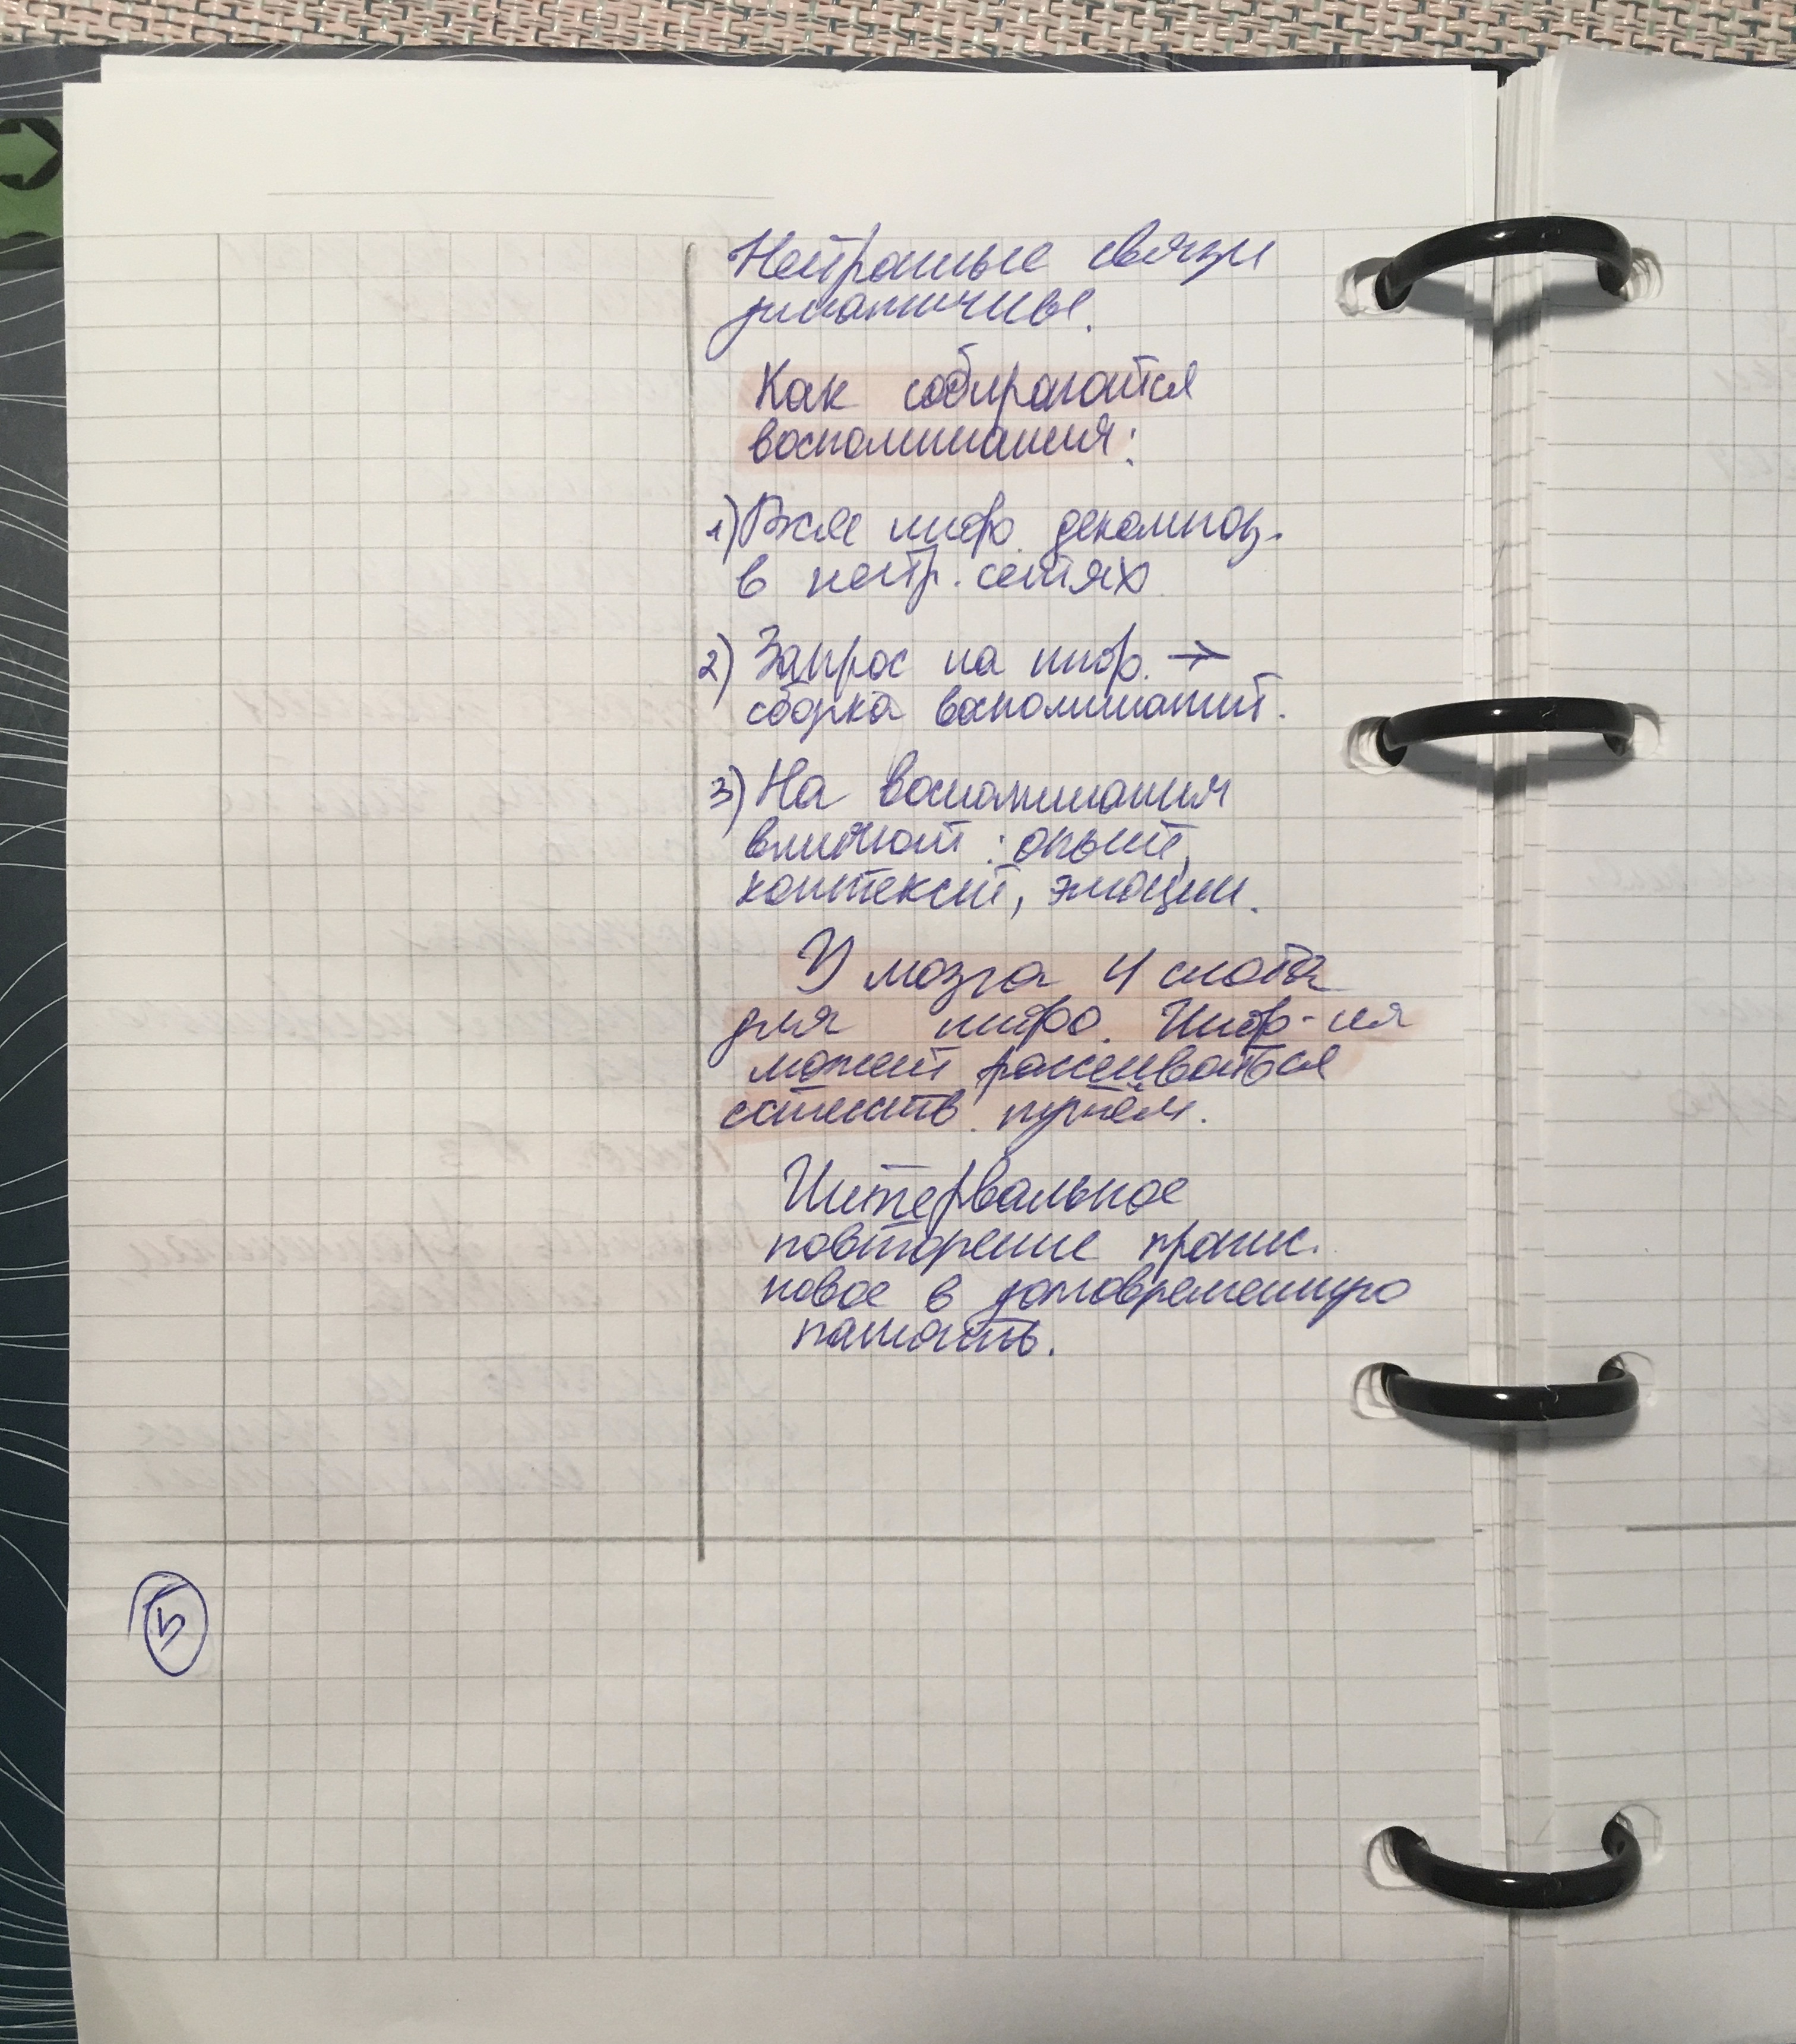 Нейронные связи
динамичны.
Как собираются
воспоминания:
1) Вся инфо. декомпоз.
в нейр. сетях
2) Запрос на инфо. →
сборка воспоминаний.
3) На воспоминания
влияют: опыт,
контекст, эмоции.
У мозга 4 слота
для инфо. Инфо-ия
может рассеиваться
естеств. путём.
Интервальное
повторение
новое в долговременную
память.
5